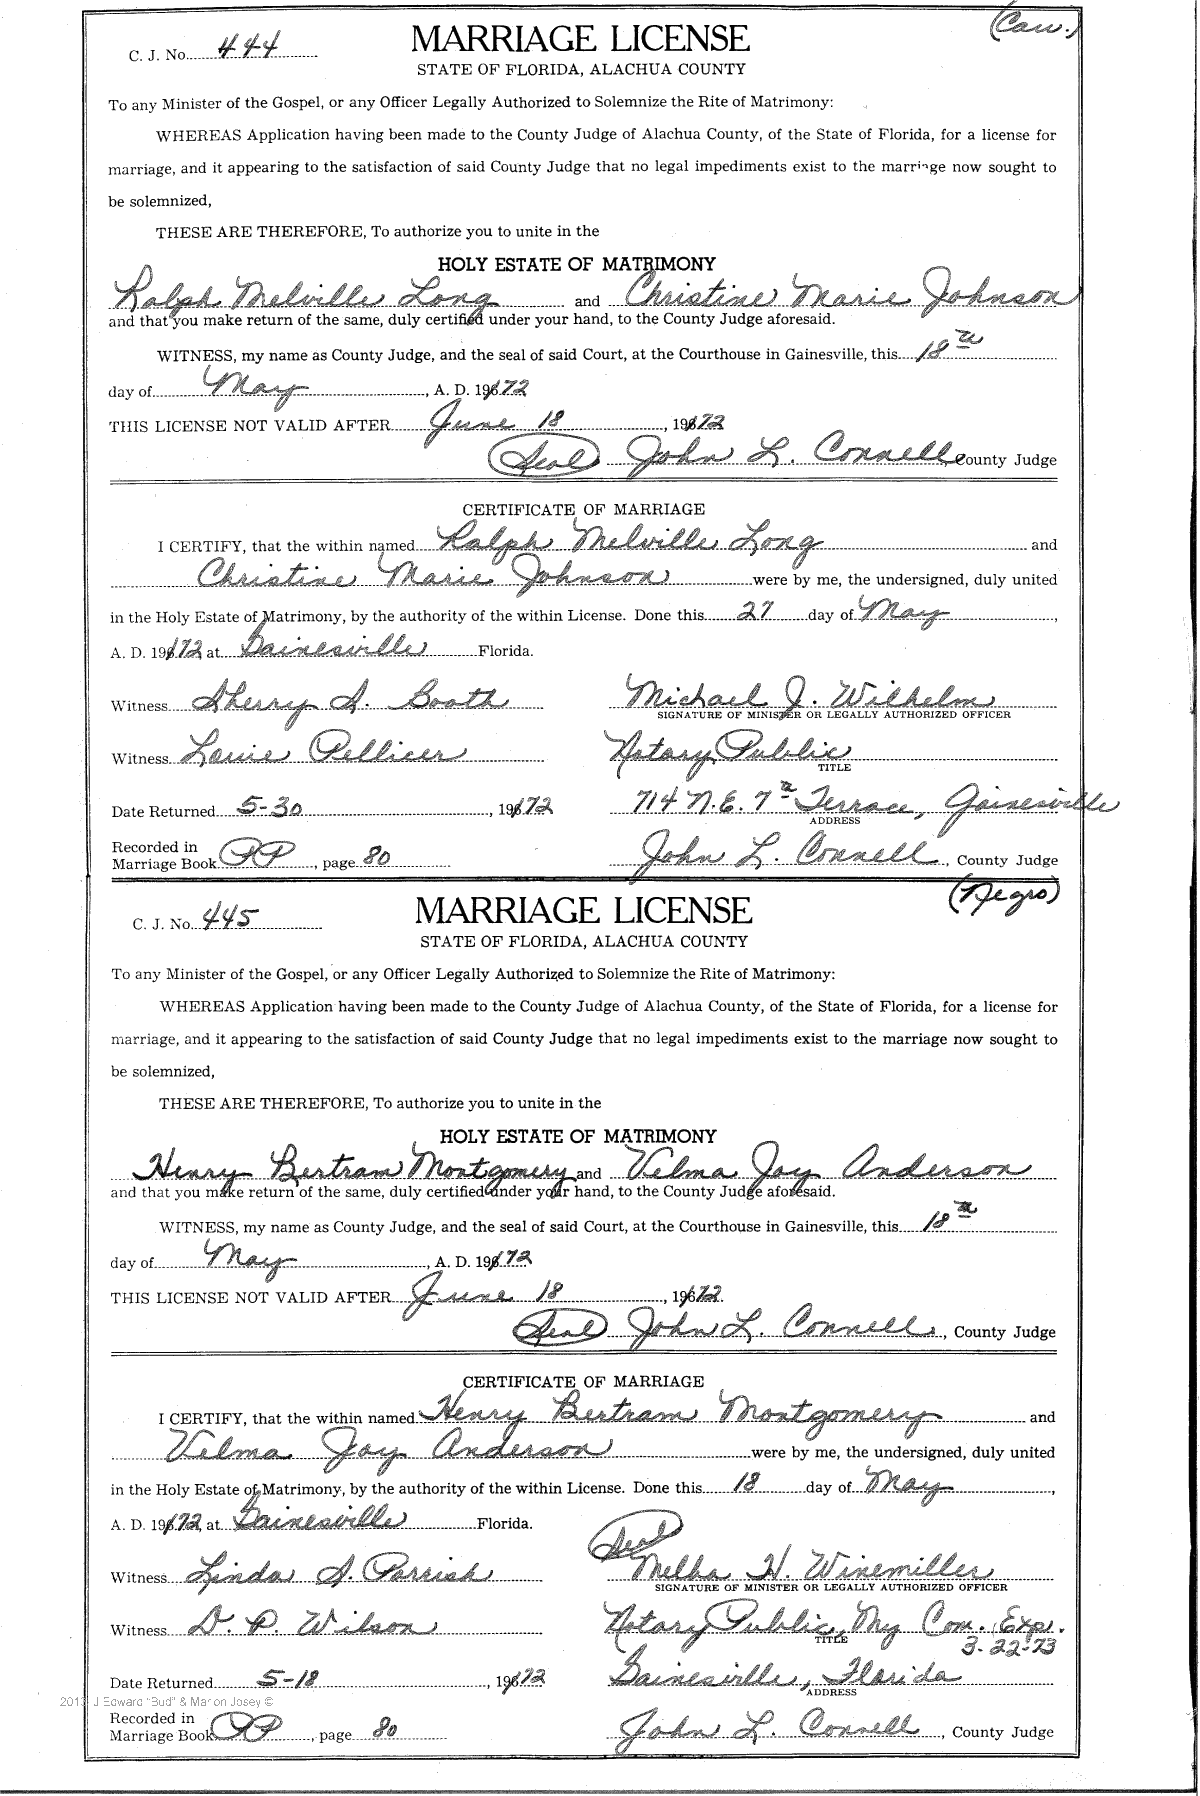 (Cau.)
C. J. No. 444
MARRIAGE LICENSE
STATE OF FLORIDA, ALACHUA COUNTY
To any Minister of the Gospel, or any Officer Legally Authorized to Solemnize the Rite of Matrimony:
WHEREAS Application having been made to the County Judge of Alachua County, of the State of Florida, for a license for
marriage, and it appearing to the satisfaction of said County Judge that no legal impediments exist to the marriage now sought to
be solemnized,
THESE ARE THEREFORE, To authorize you to unite in the
HOLY ESTATE OF MATRIMONY
Ralph Melville Long and Christine Marie Johnson
and that you make return of the same, duly certified under your hand, to the County Judge aforesaid.
WITNESS, my name as County Judge, and the seal of said Court, at the Courthouse in Gainesville, this 18th
day of May, A. D. 1972
THIS LICENSE NOT VALID AFTER June 18, 1972
(Seal) John L. Connell, County Judge
CERTIFICATE OF MARRIAGE
I CERTIFY, that the within named Ralph Melville Long and
Christine Marie Johnson were by me, the undersigned, duly united
in the Holy Estate of Matrimony, by the authority of the within License. Done this 27 day of May,
A. D. 1972 at Gainesville Florida.
Witness Sherry A. Booth Michael J. Wilhelm
SIGNATURE OF MINISTER OR LEGALLY AUTHORIZED OFFICER
Witness Louie Pellicer Notary Public
TITLE
Date Returned 5-30, 1972 714 N.E. 7th Terrace, Gainesville
ADDRESS
Recorded in
Marriage Book PP, page 80 John L. Connell, County Judge
(Negro)
C. J. No. 445
MARRIAGE LICENSE
STATE OF FLORIDA, ALACHUA COUNTY
To any Minister of the Gospel, or any Officer Legally Authorized to Solemnize the Rite of Matrimony:
WHEREAS Application having been made to the County Judge of Alachua County, of the State of Florida, for a license for
marriage, and it appearing to the satisfaction of said County Judge that no legal impediments exist to the marriage now sought to
be solemnized,
THESE ARE THEREFORE, To authorize you to unite in the
HOLY ESTATE OF MATRIMONY
Henry Bertram Montgomery and Velma Joy Anderson
and that you make return of the same, duly certified under your hand, to the County Judge aforesaid.
WITNESS, my name as County Judge, and the seal of said Court, at the Courthouse in Gainesville, this 18th
day of May, A. D. 1972
THIS LICENSE NOT VALID AFTER June 18, 1972.
(Seal) John L. Connell, County Judge
CERTIFICATE OF MARRIAGE
I CERTIFY, that the within named Henry Bertram Montgomery and
Velma Joy Anderson were by me, the undersigned, duly united
in the Holy Estate of Matrimony, by the authority of the within License. Done this 18 day of May,
A. D. 1972, at Gainesville Florida.
(Seal)
Witness Linda S. Parrish Melba H. Winemiller
SIGNATURE OF MINISTER OR LEGALLY AUTHORIZED OFFICER
Witness D. P. Wilson Notary Public, My Com. Exp.
TITLE 3-22-73
Date Returned 5-18, 1972 Gainesville, Florida
ADDRESS
2013 J Edward "Bud" & Marion Josey ©
Recorded in
Marriage Book PP, page 80 John L. Connell, County Judge